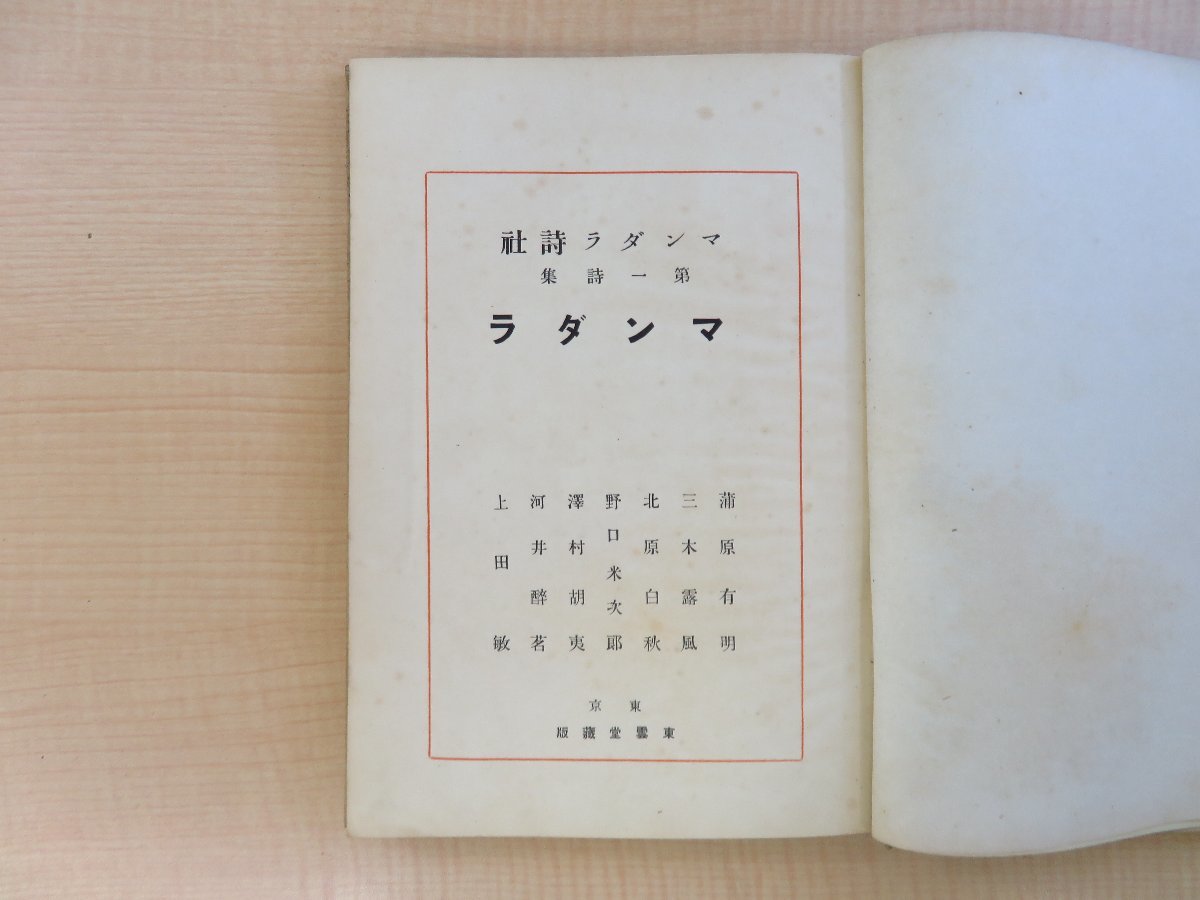 マンダラ詩社
第一詩集
マンダラ
蒲原有明
三木露風
北原白秋
野口米次郎
澤村胡夷
河井醉茗
上田敏
東京
東雲堂藏版